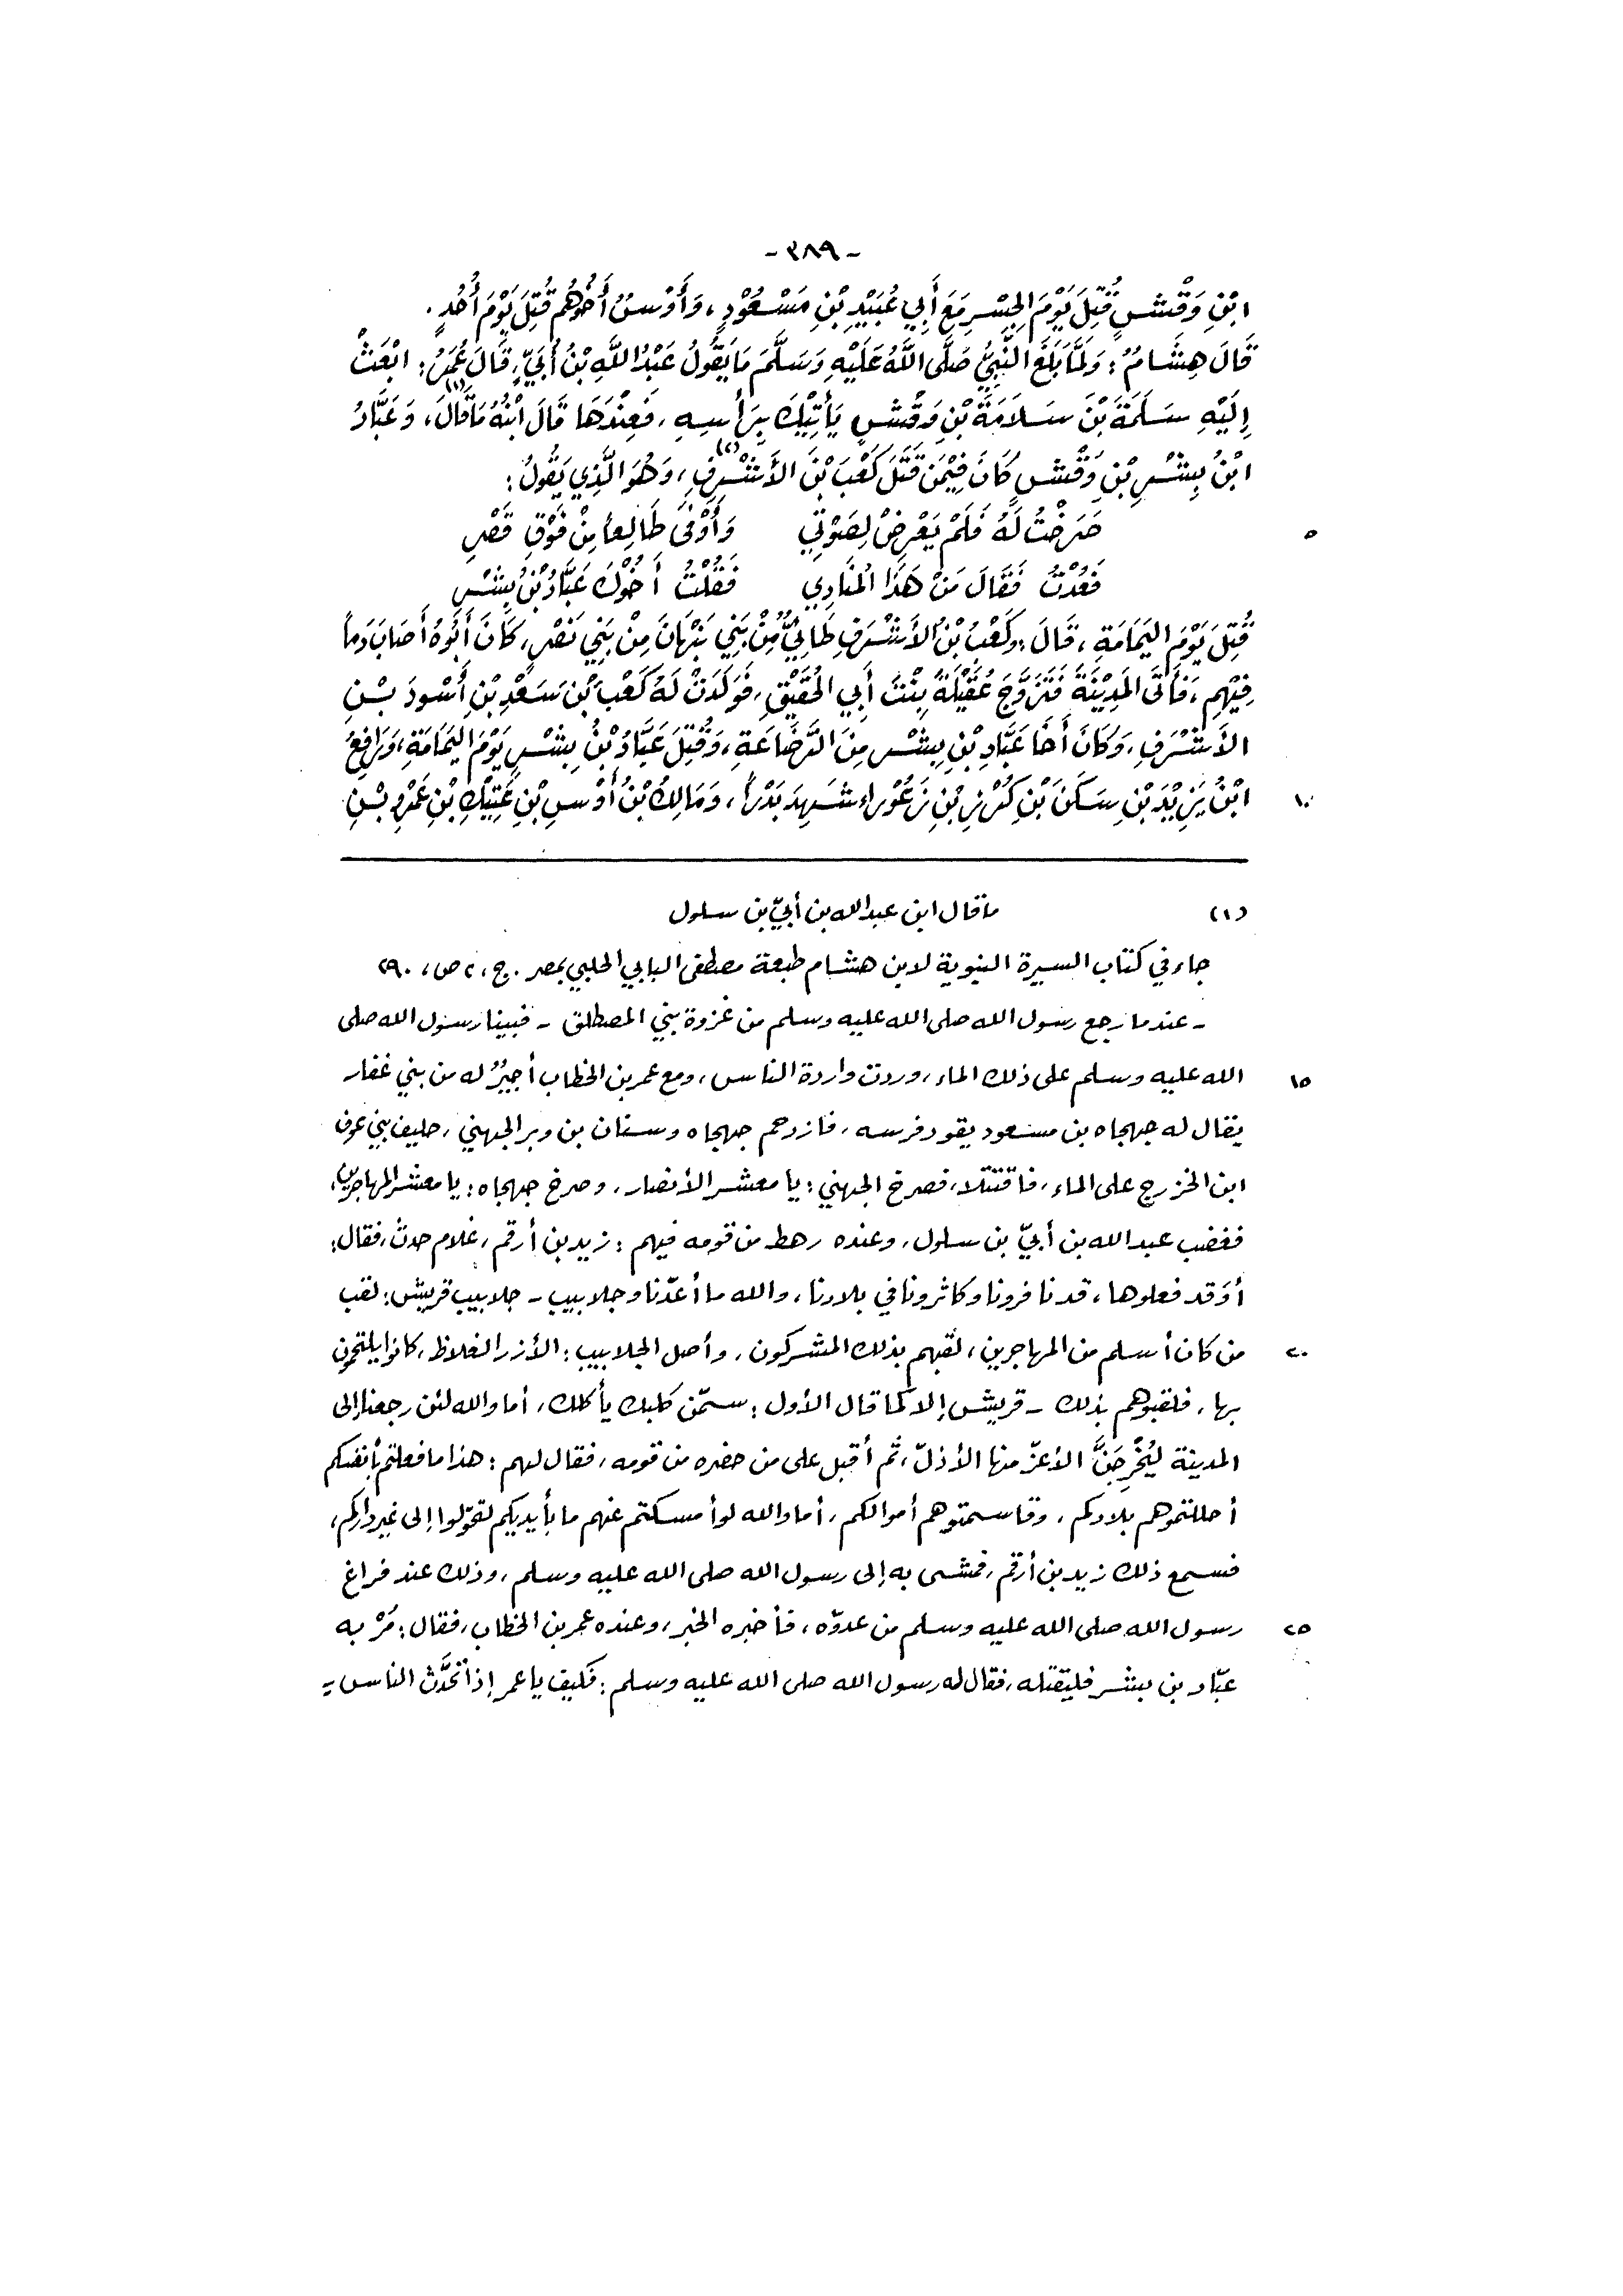 - ٣٨٩ -
ابْنِ وَقْشٍ قُتِلَ يَوْمَ الجِسْرِ مَعَ أَبِي عُبَيْدِ بْنِ مَسْعُوْدٍ، وَأَوْسُ أَخُوهُم قُتِلَ يَوْمَ أُحُدٍ.
قَالَ هِشَامُ: وَلَمَّا بَلَغَ النَّبِيُّ صَلَّى اللَّهُ عَلَيْهِ وَسَلَّمَ مَا يَقُولُ عَبْدُ اللَّهِ بْنُ أُبَيٍّ، قَالَ عُمَرُ: ابْعَثْ
إِلَيْهِ سَلَمَةَ بْنَ سَلَامَةَ بْنِ وَقْشٍ يَأْتِيْكَ بِرَأْسِهِ، فَعِنْدَهَا قَالَ ابْنُهُ مَا قَالَ(١)، وَعَبَّادُ
ابْنُ بِشْرِ بْنِ وَقْشٍ كَانَ فِيْمَن قَتَلَ كَعْبَ بْنَ الأَشْرَفِ(٢)، وَهُوَ الَّذِي يَقُولُ:
٥ صَرَخْتُ لَهُ فَلَمْ يَعْرِضْ لِصَوْتِي وَأَوْفَى طَالِعاً مِنْ فَوْقِ قَصْرِ
فَعُدْتُ فَقَالَ مَنْ هَذَا المُنَادِي فَقُلْتُ أَخُوْكَ عَبَّادُ بْنُ بِشْرِ
قُتِلَ يَوْمَ اليَمَامَةِ، قَالَ: وَكَعْبُ بْنُ الأَشْرَفِ طَائِيٌّ مِنْ بَنِي نَبْهَانَ مِنْ بَنِي نَصْرٍ، كَانَ أَبُوهُ أَصَابَ دَماً
فِيْهِم، فَأَتَى المَدِيْنَةَ فَتَزَوَّجَ عُقَيْلَةَ بِنْتَ أَبِي الحُقَيْقِ، فَوَلَدَتْ لَهُ كَعْبَ بْنَ سَعْدِ بْنِ أَسْودَ بْنِ
الأَشْرَفِ، وَكَانَ أَخَا عَبَّادِ بْنِ بِشْرٍ مِنَ الرَّضَاعَةِ، وَقُتِلَ عَبَّادُ بْنُ بِشْرٍ يَوْمَ اليَمَامَةِ، وَرَافِعُ
١٠ ابْنُ يَزِيْدَ بْنِ سَكَنَ بْنِ كُرْزِ بْنِ زَعُوْراءِ شَهِدَ بَدْراً، وَمَالِكُ بْنُ أَوْسِ بْنِ عَتِيْكِ بْنِ عَمْرِو بْنِ
(١) ما قال ابن عبد الله بن أبيّ بن سلول
جاء في كتاب السيرة النبوية لابن هشام طبعة مصطفى البابي الحلبي بمصر. ج، ٢ ص، ٢٩٠
- عندما رجع رسول الله صلى الله عليه وسلم من غزوة بني المصطلق - فبينا رسول الله صلى
١٥ الله عليه وسلم على ذلك الماء، وردت واردة الناس، ومع عمر بن الخطاب أجيرٌ له من بني غفار
يقال له جهجاه بن مسعود يقود فرسه، فازدحم جهجاه وسنان بن وبر الجهني، حليف بني عوف
ابن الخزرج على الماء، فاقتتلا، فصرخ الجهني: يا معشر الأنصار، وصرخ جهجاه: يا معشر المهاجرين،
فغضب عبد الله بن أبيّ بن سلول، وعنده رهط من قومه فيهم: زيد بن أرقم، غلام حدث، فقال:
أوَقد فعلوها، قد نافرونا وكاثرونا في بلادنا، والله ما أعدّنا وجلابيب - جلابيب قريش: لقب
٢٠ من كان أسلم من المهاجرين، لقبهم بذلك المشركون، وأصل الجلابيب: الأزر الغلاظ، كانوا يلتحفون
بها، فلقبوهم بذلك - قريش إلا كما قال الأول: سمّن كلبك يأكلك، أما والله لئن رجعنا إلى
المدينة ليُخْرِجَنَّ الأعزّ منها الأذلّ، ثم أقبل على من حضره من قومه، فقال لهم: هذا ما فعلتم بأنفسكم
أحللتموهم بلادكم، وقاسمتوهم أموالكم، أما والله لو أمسكتم عنهم ما بأيديكم لتحوّلوا إلى غير داركم،
فسمع ذلك زيد بن أرقم، فمشى به إلى رسول الله صلى الله عليه وسلم، وذلك عند فراغ
٢٥ رسول الله صلى الله عليه وسلم من عدوّه، فأخبره الخبر، وعنده عمر بن الخطاب، فقال: مُرْ به
عبّاد بن بشر فليقتله، فقال له رسول الله صلى الله عليه وسلم: فكيف يا عمر إذا تحَدَّث الناس =